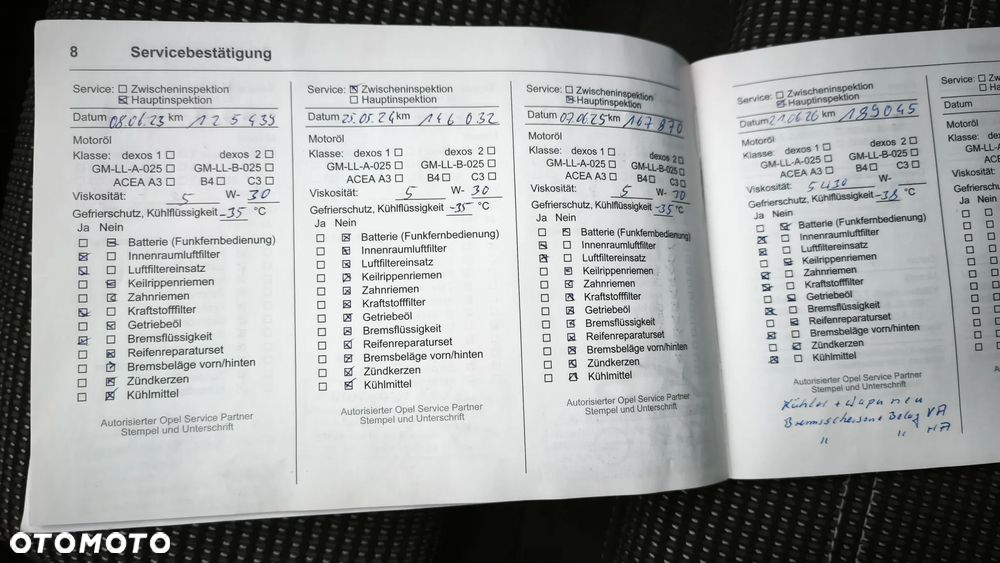 8 Servicebestätigung
Service: Zwischeninspektion
Hauptinspektion
Datum 08.06.23 km 125439
Motoröl
Klasse: dexos 1 dexos 2
GM-LL-A-025 GM-LL-B-025
ACEA A3 B4 C3
Viskosität: 5 W- 30
Gefrierschutz, Kühlflüssigkeit -35 °C
Ja Nein
Batterie (Funkfernbedienung)
Innenraumluftfilter
Luftfiltereinsatz
Keilrippenriemen
Zahnriemen
Kraftstofffilter
Getriebeöl
Bremsflüssigkeit
Reifenreparaturset
Bremsbeläge vorn/hinten
Zündkerzen
Kühlmittel
Autorisierter Opel Service Partner
Stempel und Unterschrift
Service: Zwischeninspektion
Hauptinspektion
Datum 25.05.24 km 146032
Motoröl
Klasse: dexos 1 dexos 2
GM-LL-A-025 GM-LL-B-025
ACEA A3 B4 C3
Viskosität: 5 W- 30
Gefrierschutz, Kühlflüssigkeit -35 °C
Ja Nein
Batterie (Funkfernbedienung)
Innenraumluftfilter
Luftfiltereinsatz
Keilrippenriemen
Zahnriemen
Kraftstofffilter
Getriebeöl
Bremsflüssigkeit
Reifenreparaturset
Bremsbeläge vorn/hinten
Zündkerzen
Kühlmittel
Autorisierter Opel Service Partner
Stempel und Unterschrift
Service: Zwischeninspektion
Hauptinspektion
Datum 07.06.25 km 167870
Motoröl
Klasse: dexos 1 dexos 2
GM-LL-A-025 GM-LL-B-025
ACEA A3 B4 C3
Viskosität: 5 W- 30
Gefrierschutz, Kühlflüssigkeit -35 °C
Ja Nein
Batterie (Funkfernbedienung)
Innenraumluftfilter
Luftfiltereinsatz
Keilrippenriemen
Zahnriemen
Kraftstofffilter
Getriebeöl
Bremsflüssigkeit
Reifenreparaturset
Bremsbeläge vorn/hinten
Zündkerzen
Kühlmittel
Autorisierter Opel Service Partner
Stempel und Unterschrift
Service: Zwischeninspektion
Hauptinspektion
Datum 21.06.26 km 189045
Motoröl
Klasse: dexos 1 dexos 2
GM-LL-A-025 GM-LL-B-025
ACEA A3 B4 C3
Viskosität: W-
Gefrierschutz, Kühlflüssigkeit -38 °C
Ja Nein
Batterie (Funkfernbedienung)
Innenraumluftfilter
Luftfiltereinsatz
Keilrippenriemen
Zahnriemen
Kraftstofffilter
Getriebeöl
Bremsflüssigkeit
Reifenreparaturset
Bremsbeläge vorn/hinten
Zündkerzen
Kühlmittel
Autorisierter Opel Service Partner
Stempel und Unterschrift
Kühler + neu
Bremsscheiben + Belag VA
" " HA
Service:
Datum
Motoröl
Klasse:
Viskosität:
Gefrierschutz
Ja Nein
OTOMOTO